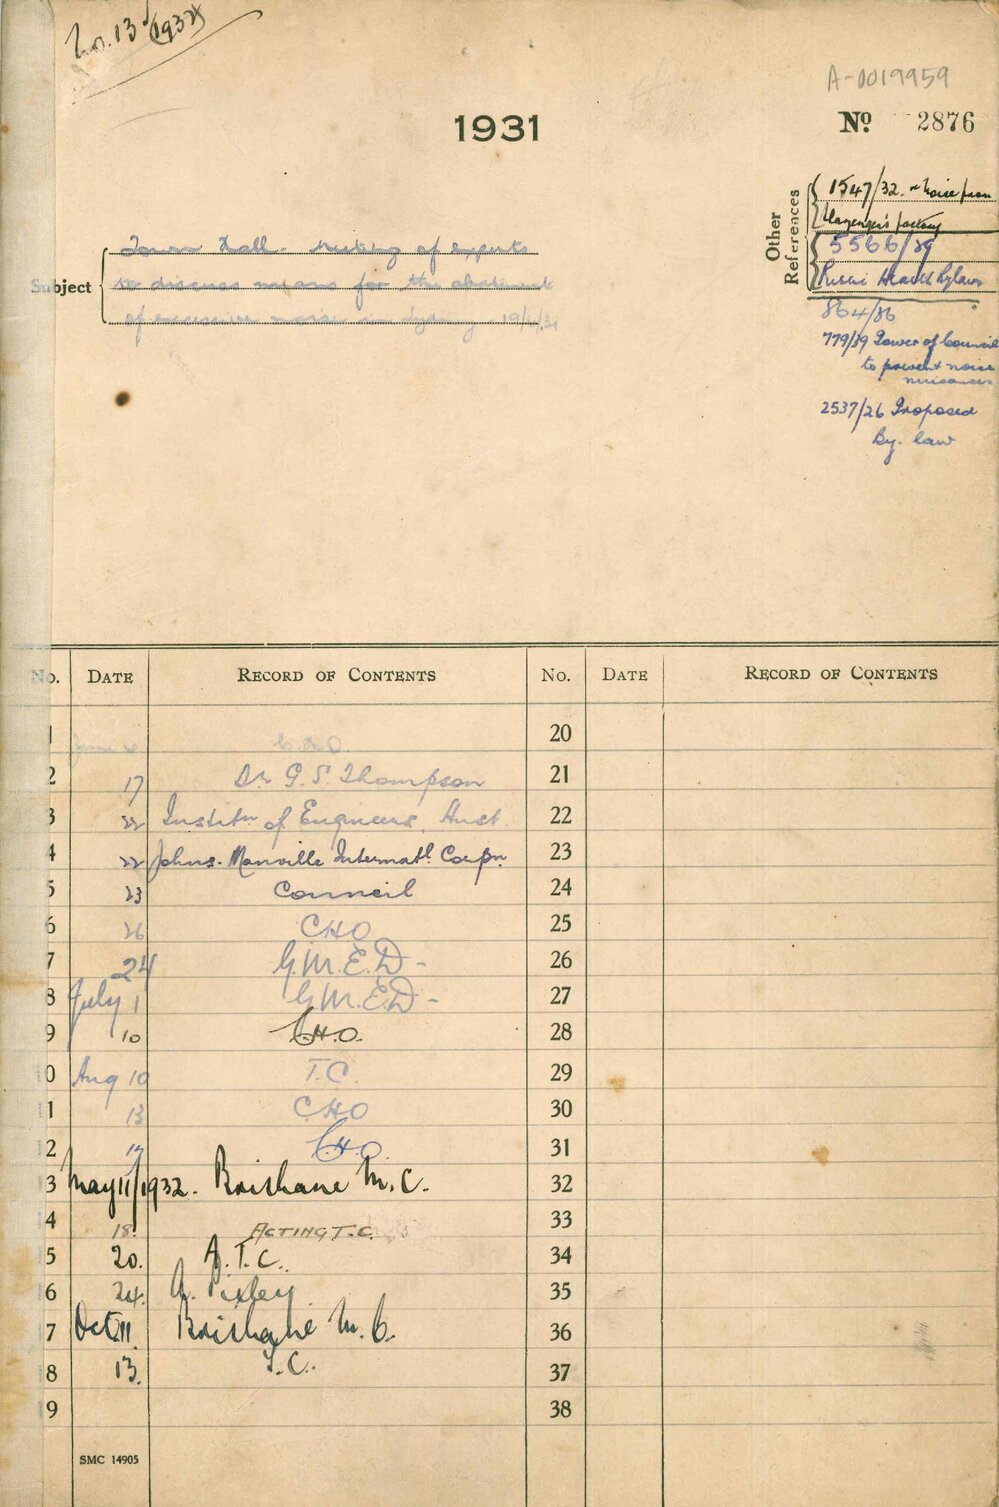 No. 13 (1932)
A-0019959
1931
No 2876
Other References
1547/32. Noise from
Slazenger's factory
5566/29
Public Health Bylaws
864/36
779/39 Power of Council
to prevent noise
nuisances
2537/26 Proposed
By-law
Subject
Town Hall - Meeting of experts
to discuss means for the abatement
of excessive noise in Sydney - 19/6/31
No. DATE RECORD OF CONTENTS No. DATE RECORD OF CONTENTS
1 June C.H.O. 20
2 17 Dr G.S. Thompson 21
3 22 Institn of Engineers Aust. 22
4 22 Johns-Manville Internatl. Corpn. 23
5 23 Council 24
6 26 CHO 25
7 24 G.M.E.D - 26
8 July 1 G.M.E.D - 27
9 10 C.H.O. 28
0 Aug 10 T.C. 29
1 13 CHO 30
2 17 C.H.O. 31
3 May 11/1932. Brisbane M.C. 32
4 18. ACTING T.C. 33
5 20. A.T.C. 34
6 24. A. Pixley 35
7 Oct 11. Brisbane M.C. 36
8 13. T.C. 37
9 38
SMC 14905